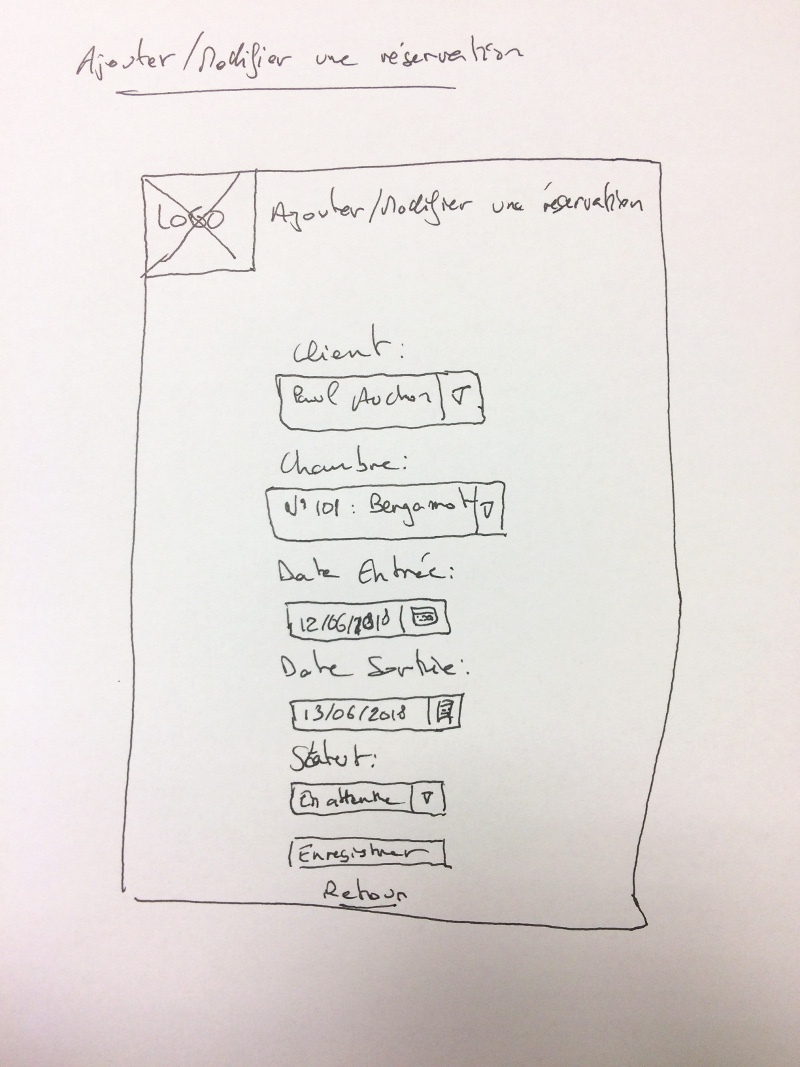 Ajouter/Modifier une réservation
LOGO
Ajouter/Modifier une réservation
Client :
Paul Auchon
Chambre :
N° 101 : Bergamott
Date Entrée :
12/06/2018
Date Sortie :
13/06/2018
Statut :
En attente
Enregistrer
Retour